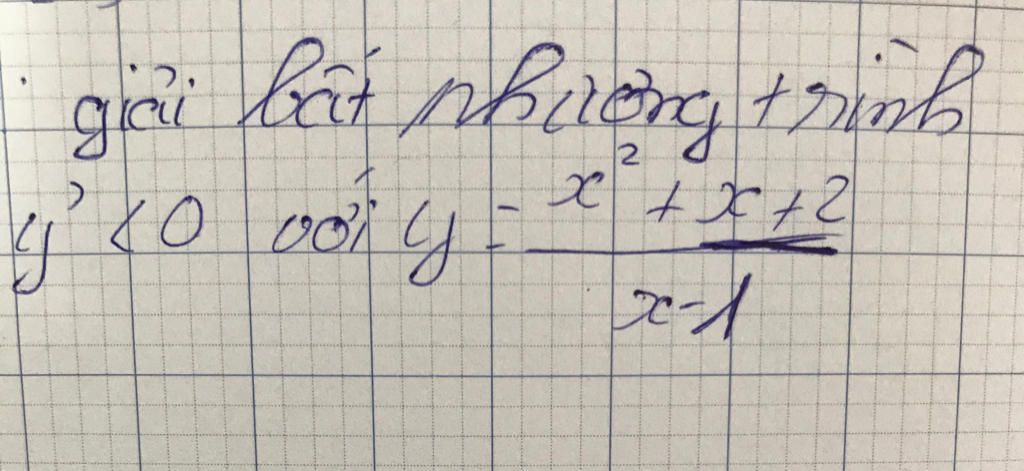 giải bất phương trình
y' < 0 với y = \frac{x^2 + x + 2}{x - 1}